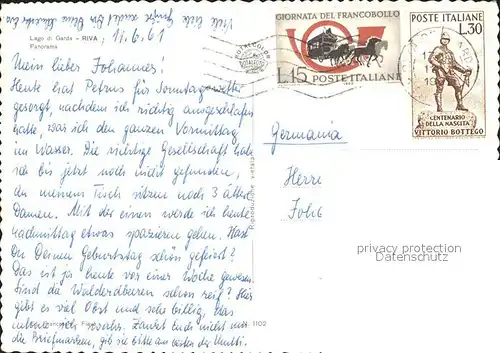 11.6.61
Lago di Garda - RIVA
Panorama
Mein lieber Johannes!
Heute hat Petrus für Sonntagswetter
gesorgt, nachdem ich richtig ausgeschlafen
hatte, war ich den ganzen Vormittag
im Wasser. Die richtige Gesellschaft habe
ich bis jetzt noch nicht gefunden,
an meinem Tisch sitzen noch 3 ältere
Damen. Mit der einen werde ich heute
nachmittag etwas spazieren gehen. Hast
Du Deinen Geburtstag schön gefeiert?
Das ist ja heute vor einer Woche gewesen.
Sind die Walderdbeeren schon reif? Hier
gibt es viel Obst und sehr billig, das
ich Zankt Euch nicht um
die Briefmarken, gib sie bitte am besten der Mutti.
GIORNATA DEL FRANCOBOLLO
L.15 POSTE ITALIANE
POSTE ITALIANE
L.30
CENTENARIO
DELLA NASCITA
VITTORIO BOTTEGO
Germania
Herrn
Joh
privacy protection
Datenschutz
1102